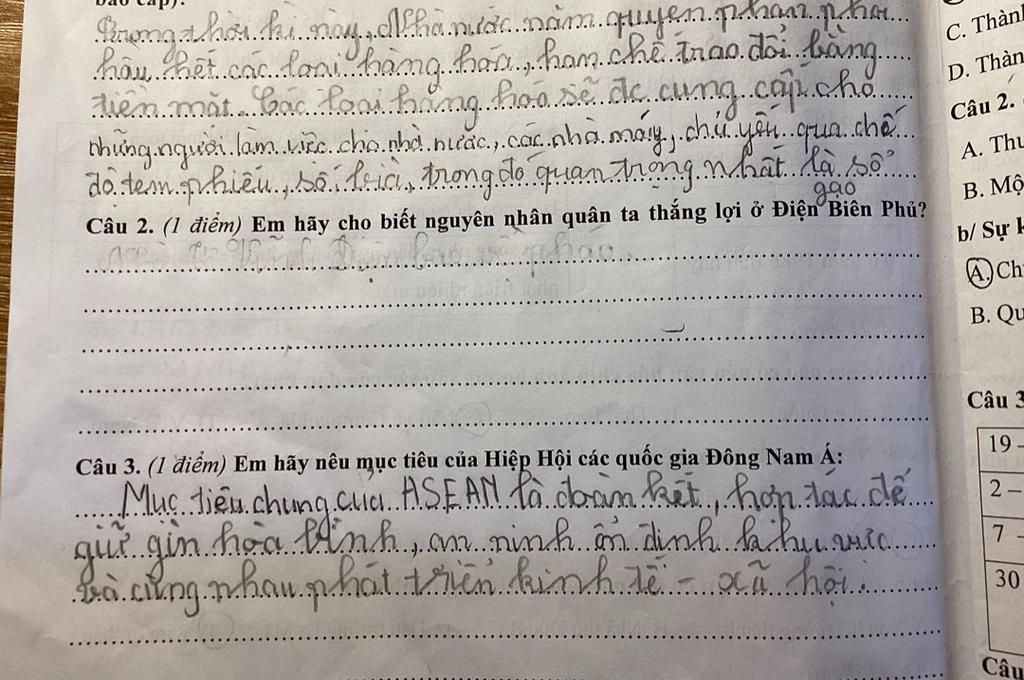 bao cấp):
Trong thời kì này, Nhà nước nắm quyền phân phối
hầu hết các loại hàng hóa, hạn chế trao đổi bằng
tiền mặt. Các loại hàng hoá sẽ đc cung cấp cho
những người làm việc cho nhà nước, các nhà máy, chủ yếu qua chế
độ tem phiếu, sổ bìa, trong đó quan trọng nhất là sổ
gạo
Câu 2. (1 điểm) Em hãy cho biết nguyên nhân quân ta thắng lợi ở Điện Biên Phủ?
Câu 3. (1 điểm) Em hãy nêu mục tiêu của Hiệp Hội các quốc gia Đông Nam Á:
Mục tiêu chung của ASEAN là đoàn kết, hợp tác để
giữ gìn hòa bình, an ninh ổn định khu vực
và cùng nhau phát triển kinh tế - xã hội.
C. Thành
D. Thàn
Câu 2.
A. Thu
B. Mộ
b/ Sự k
A. Ch
B. Qu
Câu 3
19 -
2 –
7 -
30
Câu